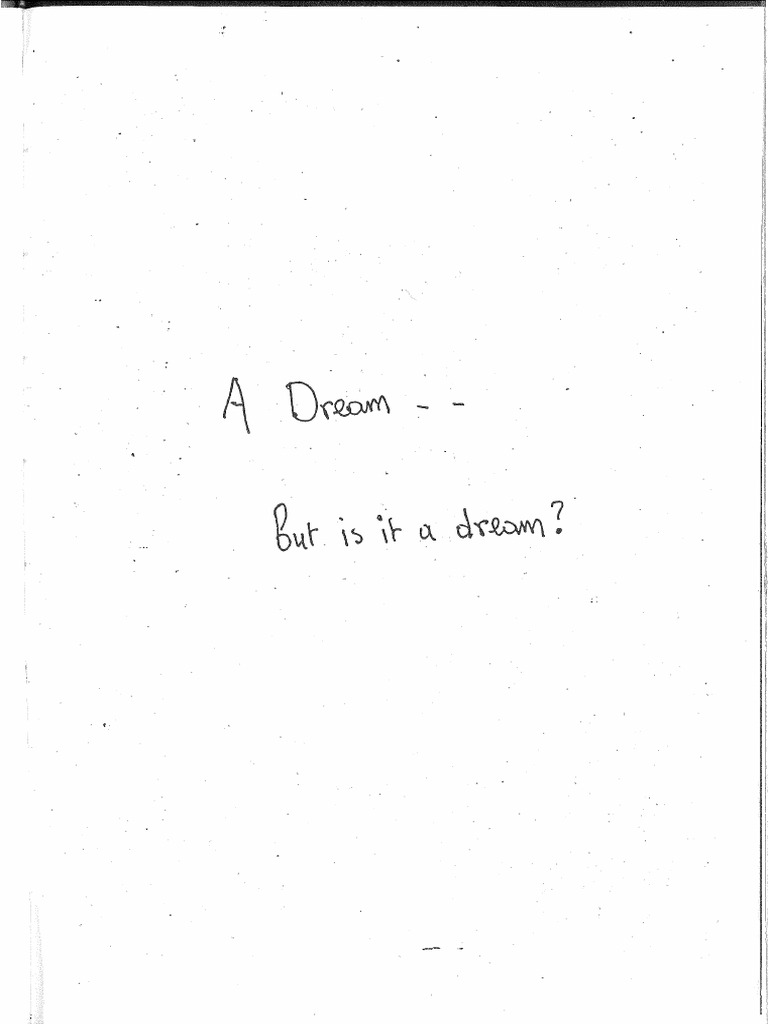 A Dream - -
But is it a dream?
- -